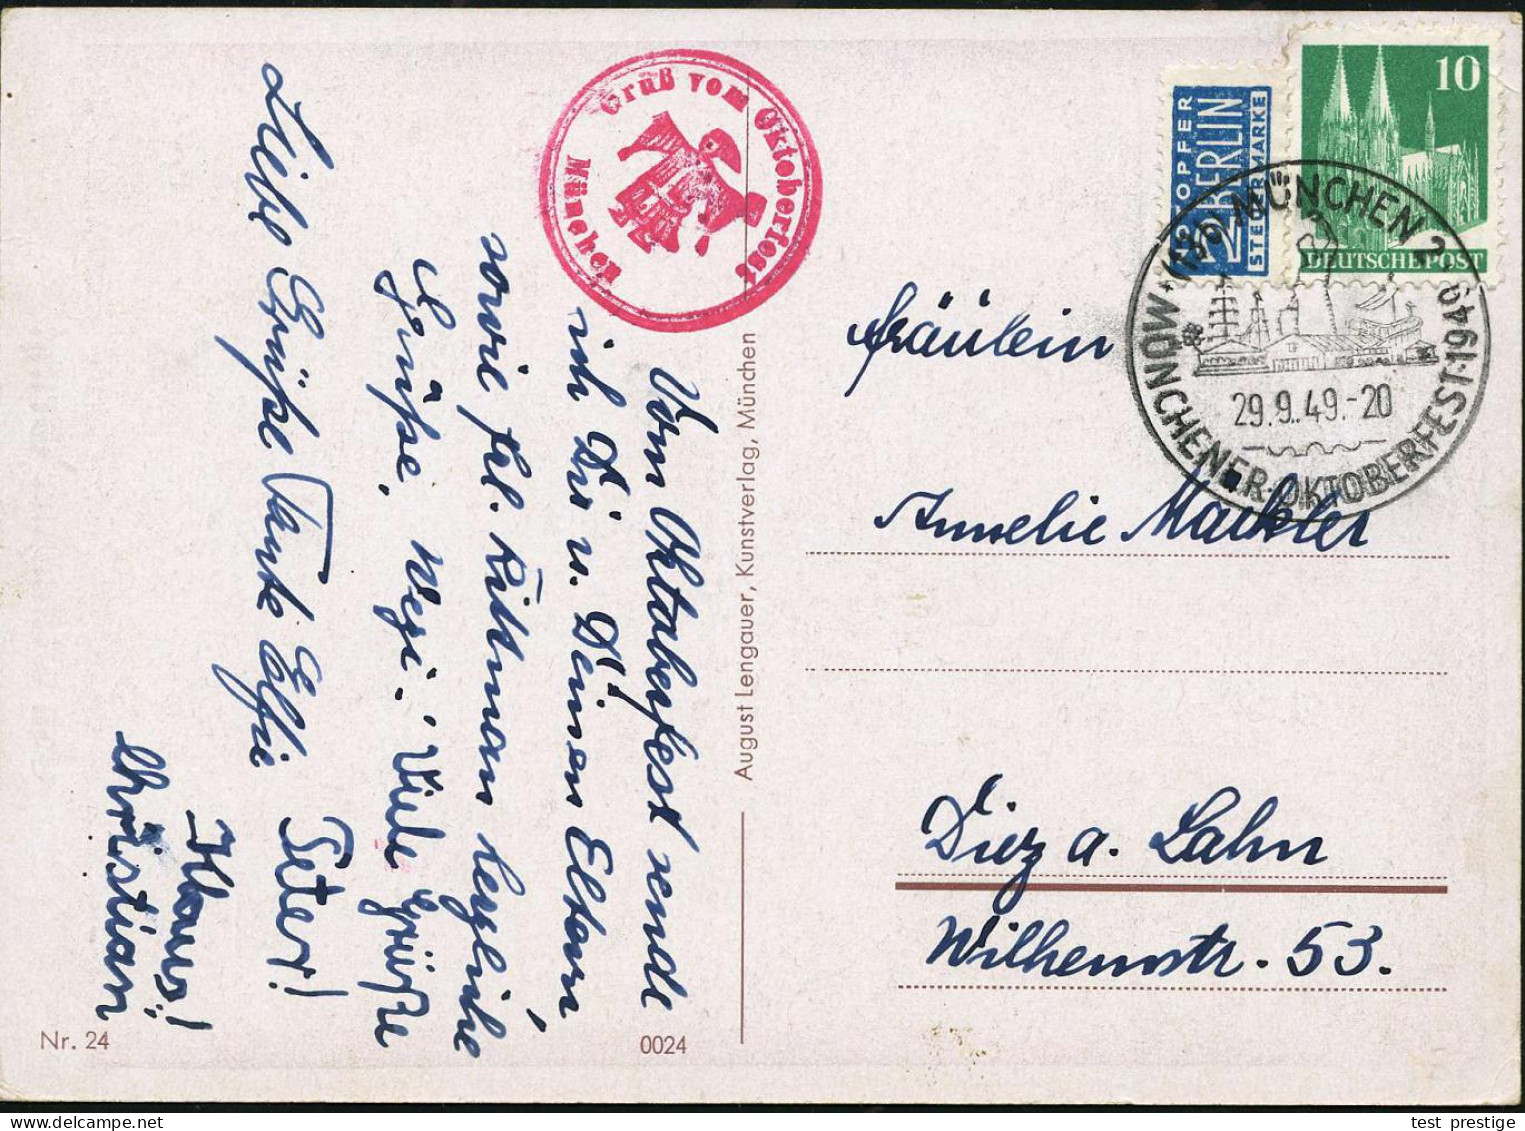 Vom Oktoberfest sende
ich Dir u. Deinen Eltern,
sowie Frl. Kittmann herzliche
Grüsse.
Viele Grüße
Liebe Grüße Tante Elfie
Peter!
Klaus!
Christian
Gruß vom Oktoberfest
München
NOTOPFER
2 BERLIN
STEUERMARKE
10
DEUTSCHE POST
(13b) MÜNCHEN 2
MÜNCHENER·OKTOBERFEST·1949
29.9.49.-20
Fräulein
Annelie Mackler
Diez a. Lahn
Wilhemstr. 53.
August Lengauer, Kunstverlag, München
Nr. 24
0024
test_prestige